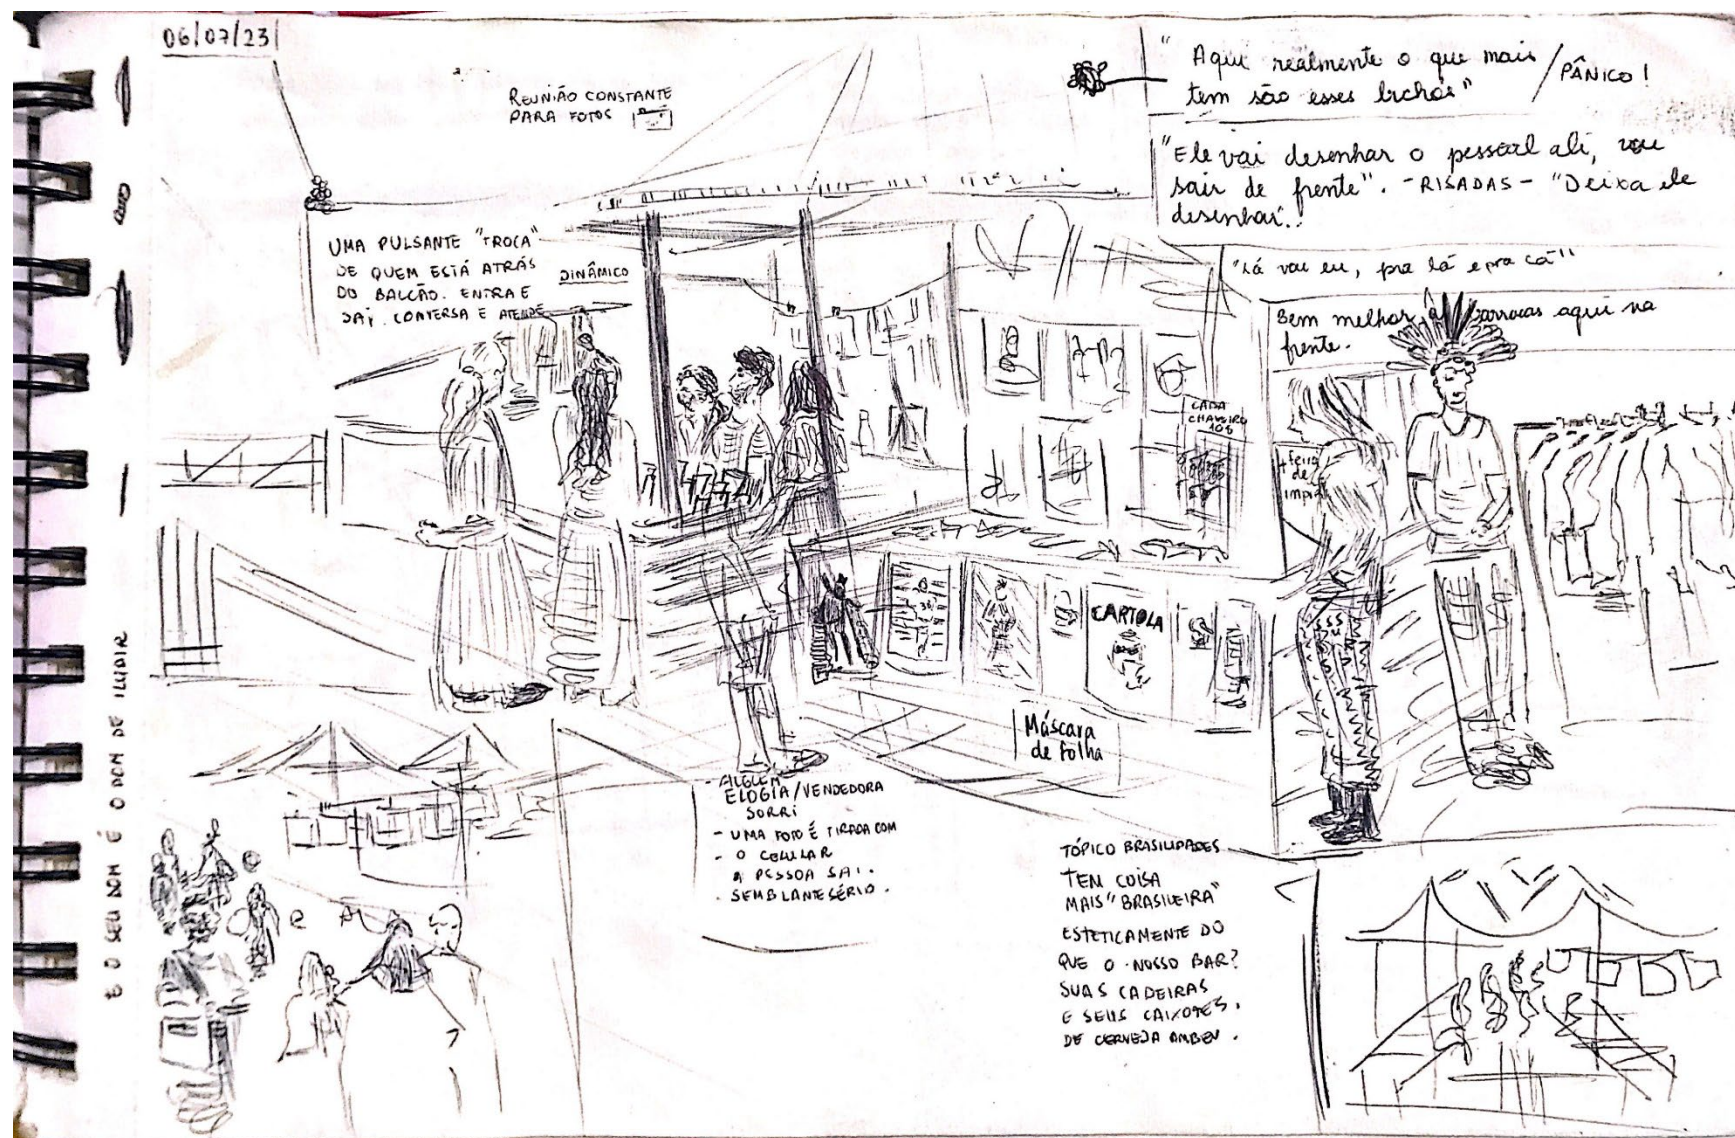 06/07/23
REUNIÃO CONSTANTE
PARA FOTOS
"Aqui realmente o que mais
tem são esses bichos"
/ PÂNICO!
"Ele vai desenhar o pessoal ali, vou
sair de frente". -RISADAS- "Deixa ele
desenhar!"
"Lá vou eu, pra lá e pra cá"
Bem melhor, barracas aqui na
frente.
UMA PULSANTE "TROCA"
DE QUEM ESTÁ ATRÁS
DO BALCÃO. ENTRA E
SAI. CONVERSA E ATENDE
DINÂMICO
CADA
CHAVEIRO
10$
+ feira
de
CARTOLA
Máscara
de folha
- ALGUÉM
ELOGIA/VENDEDORA
SORRI
- UMA FOTO É TIRADA COM
- O CELULAR
A PESSOA SAI.
. SEMBLANTE SÉRIO.
TÓPICO BRASILIDADES
TEM COISA
MAIS "BRASILEIRA"
ESTETICAMENTE DO
QUE O NOSSO BAR?
SUAS CADEIRAS
E SEUS CAIXOTES.
DE CERVEJA AMBEV.
E O SEU DOM É O DOM DE ILUDIR